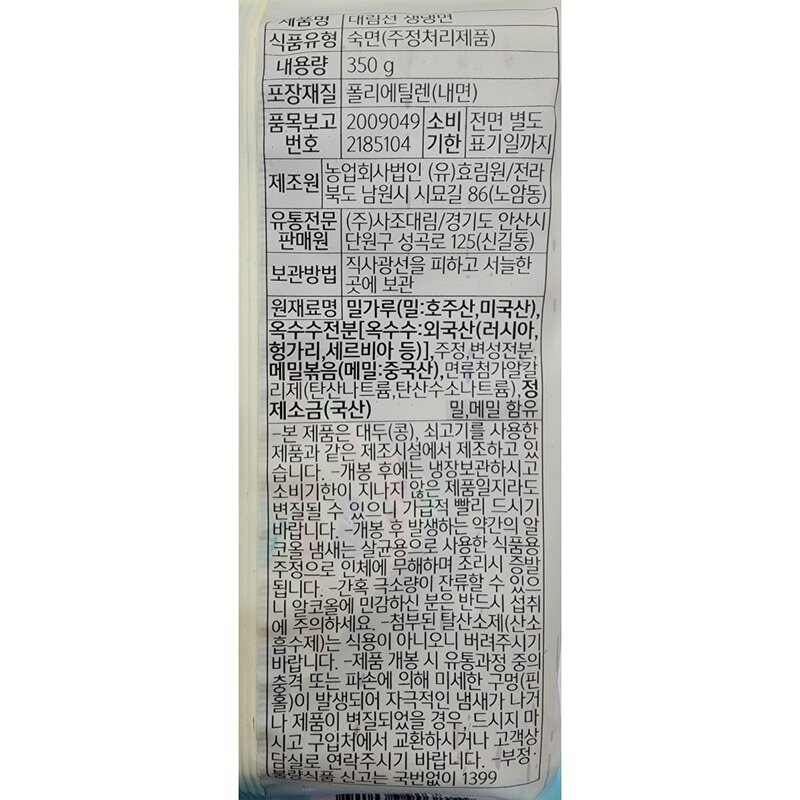 제품명 대림선 생냉면
식품유형 숙면(주정처리제품)
내용량 350 g
포장재질 폴리에틸렌(내면)
품목보고 2009049 소비 전면 별도
번호 2185104 기한 표기일까지
제조원 농업회사법인 (유)효림원/전라
북도 남원시 시묘길 86(노암동)
유통전문 (주)사조대림/경기도 안산시
판매원 단원구 성곡로 125(신길동)
보관방법 직사광선을 피하고 서늘한
곳에 보관
원재료명 밀가루(밀:호주산,미국산),
옥수수전분[옥수수:외국산(러시아,
헝가리,세르비아 등)],주정,변성전분,
메밀볶음(메밀:중국산),면류첨가알칼
리제(탄산나트륨,탄산수소나트륨),정
제소금(국산) 밀,메밀 함유
-본 제품은 대두(콩), 쇠고기를 사용한
제품과 같은 제조시설에서 제조하고 있
습니다. -개봉 후에는 냉장보관하시고
소비기한이 지나지 않은 제품일지라도
변질될 수 있으니 가급적 빨리 드시기
바랍니다. -개봉 후 발생하는 약간의 알
코올 냄새는 살균용으로 사용한 식품용
주정으로 인체에 무해하며 조리시 증발
됩니다. -간혹 극소량이 잔류할 수 있으
니 알코올에 민감하신 분은 반드시 섭취
에 주의하세요. -첨부된 탈산소제(산소
흡수제)는 식용이 아니오니 버려주시기
바랍니다. -제품 개봉 시 유통과정 중의
충격 또는 파손에 의해 미세한 구멍(핀
홀)이 발생되어 자극적인 냄새가 나거
나 제품이 변질되었을 경우, 드시지 마
시고 구입처에서 교환하시거나 고객상
담실로 연락주시기 바랍니다. -부정·
불량식품 신고는 국번없이 1399